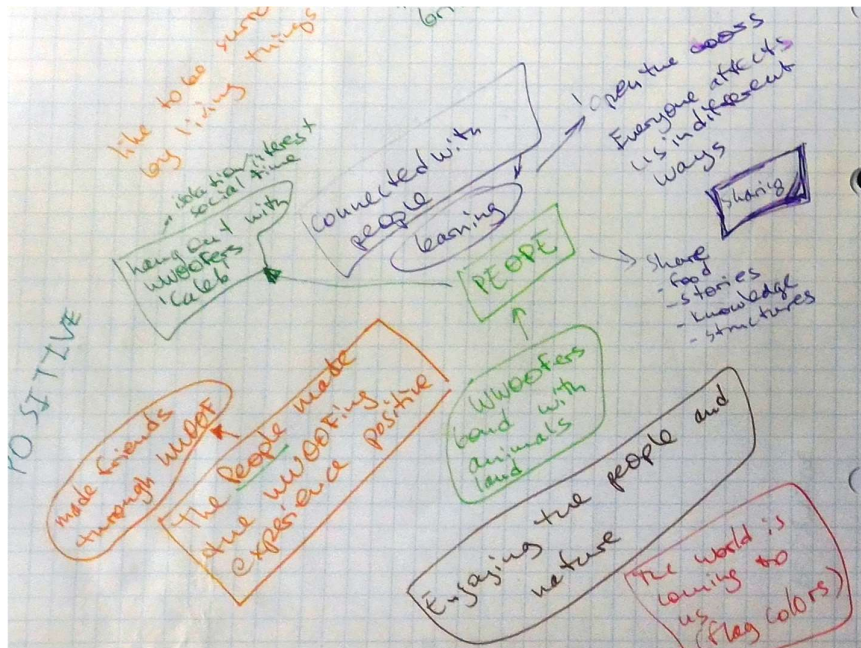 like to be surro
by living things
isolation/interest
social time
hang out with
WWOOFers
Caleb
connected with
people
learning
open the doors
Everyone affects
us in different
ways
sharing
PEOPE
share
- food
- stories
- knowledge
- structures
POSITIVE
made friends
through WWOOF
The People made
the WWOOFing
experience positive
WWOOFers
bond with
animals
land
Engaging the people and
nature
The world is
coming to
us
(flag colors)